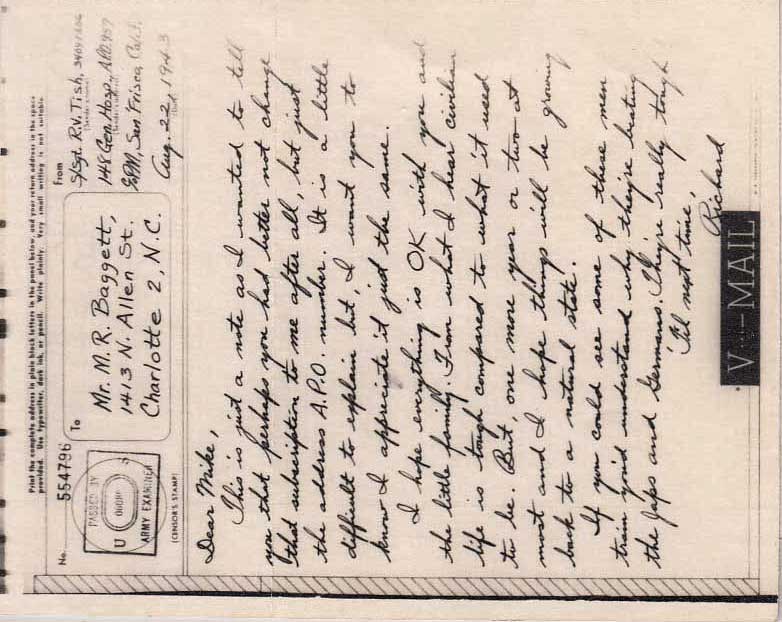 Print the complete address in plain black letters in the panel below, and your return address in the space
provided. Use typewriter, dark ink, or pencil. Write plainly. Very small writing is not suitable.
No. 554796
PASSED BY
U S
ARMY EXAMINER
(CENSOR'S STAMP)
To
Mr. M. R. Baggett,
1413 N. Allen St.
Charlotte 2, N.C.
From
S/Sgt. R.V. Tish,
(Sender's name)
148 Gen. Hosp., APO 957
(Sender's address)
%PM, San Frisco, Calif.
Aug. 22, 1943
(Date)
Dear Mike,
This is just a note as I wanted to tell
you that perhaps you had better not change
that subscription to me after all, but just
the address A.P.O. number. It is a little
difficult to explain but, I want you to
know I appreciate it just the same.
I hope everything is OK with you and
the little family. From what I hear civilian
life is tough compared to what it used
to be. But, one more year or two at
most and I hope things will be growing
back to a natural state.
If you could see some of these men
train you'd understand why they're beating
the Japs and Germans. They're really tough!
'Til next time,
Richard
V···—MAIL